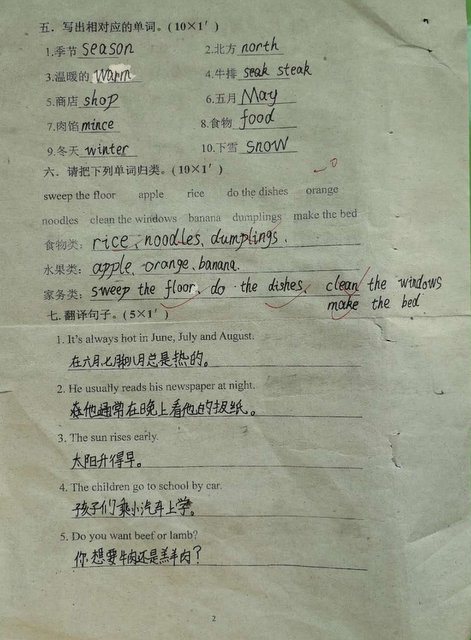 五．写出相对应的单词。(10×1′)
1.季节 season 2.北方 north
3.温暖的 warm 4.牛排 seak steak
5.商店 shop 6.五月 May
7.肉馅 mince 8.食物 food
9.冬天 winter 10.下雪 snow
六．请把下列单词归类。(10×1′)
sweep the floor apple rice do the dishes orange
noodles clean the windows banana dumplings make the bed
食物类：rice、noodles、dumplings、
水果类：apple、orange、banana.
家务类：sweep the floor、do the dishes, clean the windows
make the bed
七．翻译句子。(5×1′)
1. It's always hot in June, July and August.
在六月七月和八月总是热的。
2. He usually reads his newspaper at night.
他通常在晚上看他的报纸。
3. The sun rises early.
太阳升得早。
4. The children go to school by car.
孩子们乘小汽车上学。
5. Do you want beef or lamb?
你想要牛肉还是羔羊肉？
2